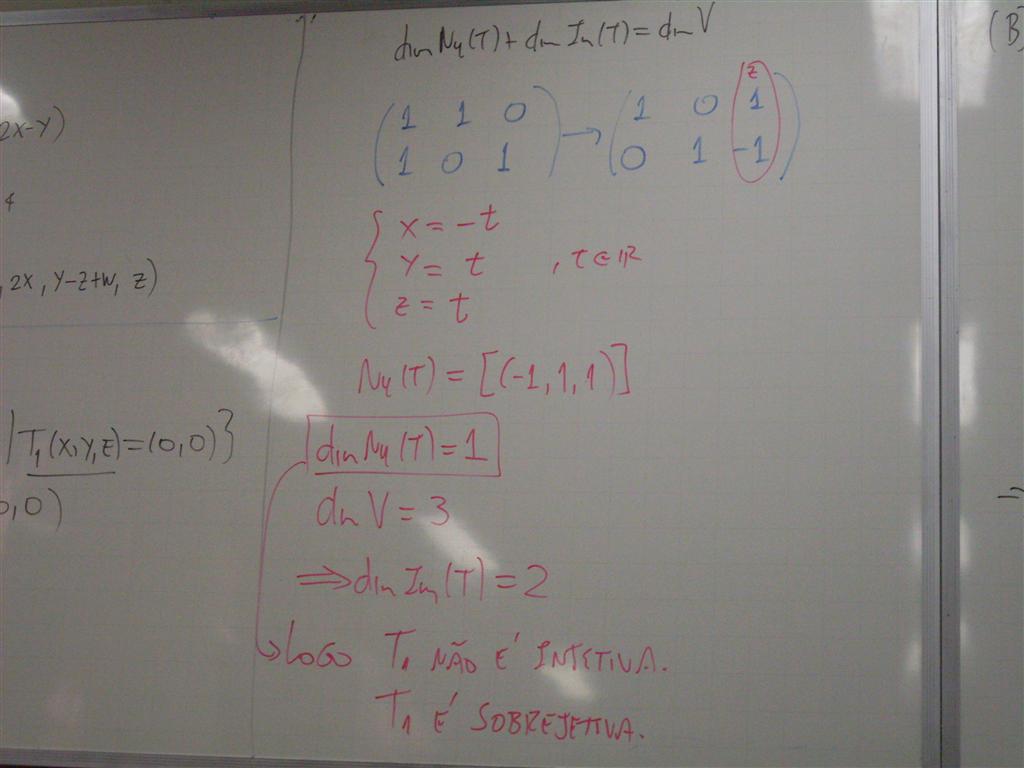 2X-Y)
, 2X, Y-Z+W, Z)
| T₁(X,Y,Z)=(0,0)}
0,0)
dim Nu(T) + dim Im(T) = dim V
(1 1 0) → (1 0 1) z
(1 0 1) (0 1 -1)
{ X = -t
{ Y = t , t ∈ ℝ
{ Z = t
Nu(T) = [(-1,1,1)]
dim Nu(T) = 1
dim V = 3
⇒ dim Im(T) = 2
↳ LOGO T₁ NÃO É INJETIVA.
T₁ É SOBREJETIVA.
(B)
⇒